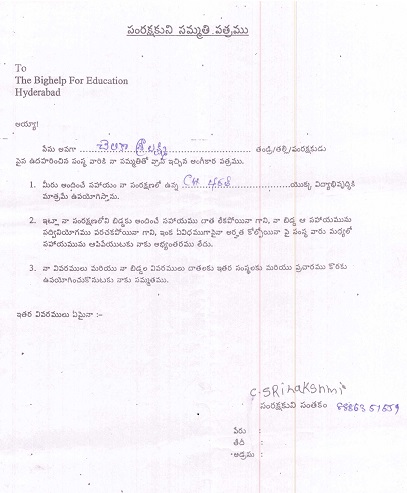 సంరక్షకుని సమ్మతి పత్రము
To
The Bighelp For Education
Hyderabad
అయ్యా!
నేను అనగా .......... శ్రీలక్ష్మి .......... తండ్రి/తల్లి/సంరక్షకుడు
పైన ఉదహరించిన సంస్థ వారికి నా సమ్మతితో వ్రాసి ఇచ్చిన అంగీకార పత్రము.
1. మీరు అందించే సహాయం నా సంరక్షణలో ఉన్న .......... యొక్క విద్యాభివృద్ధికి
మాత్రమే ఉపయోగిస్తాను.
2. ఇట్లా నా సంరక్షణలోని బిడ్డకు అందించే సహాయము దాత లేకపోయినా గాని, నా బిడ్డ ఆ సహాయమును
సద్వినియోగము పరచకపోయినా గాని, ఇంక ఏవిధముగానైనా అర్హత కోల్పోయినా పై సంస్థ వారు మధ్యలో
సహాయమును ఆపివేయుటకు నాకు అభ్యంతరము లేదు.
3. నా వివరములు మరియు నా బిడ్డల వివరములు దాతలకు ఇతర సంస్థలకు మరియు ప్రచారము కొరకు
ఉపయోగించుకొనుటకు నాకు సమ్మతము.
ఇతర వివరములు ఏమైనా :-
C. SRILAKSHMI
సంరక్షకుని సంతకం 8886351659
పేరు :
తేది :
అడ్రసు :